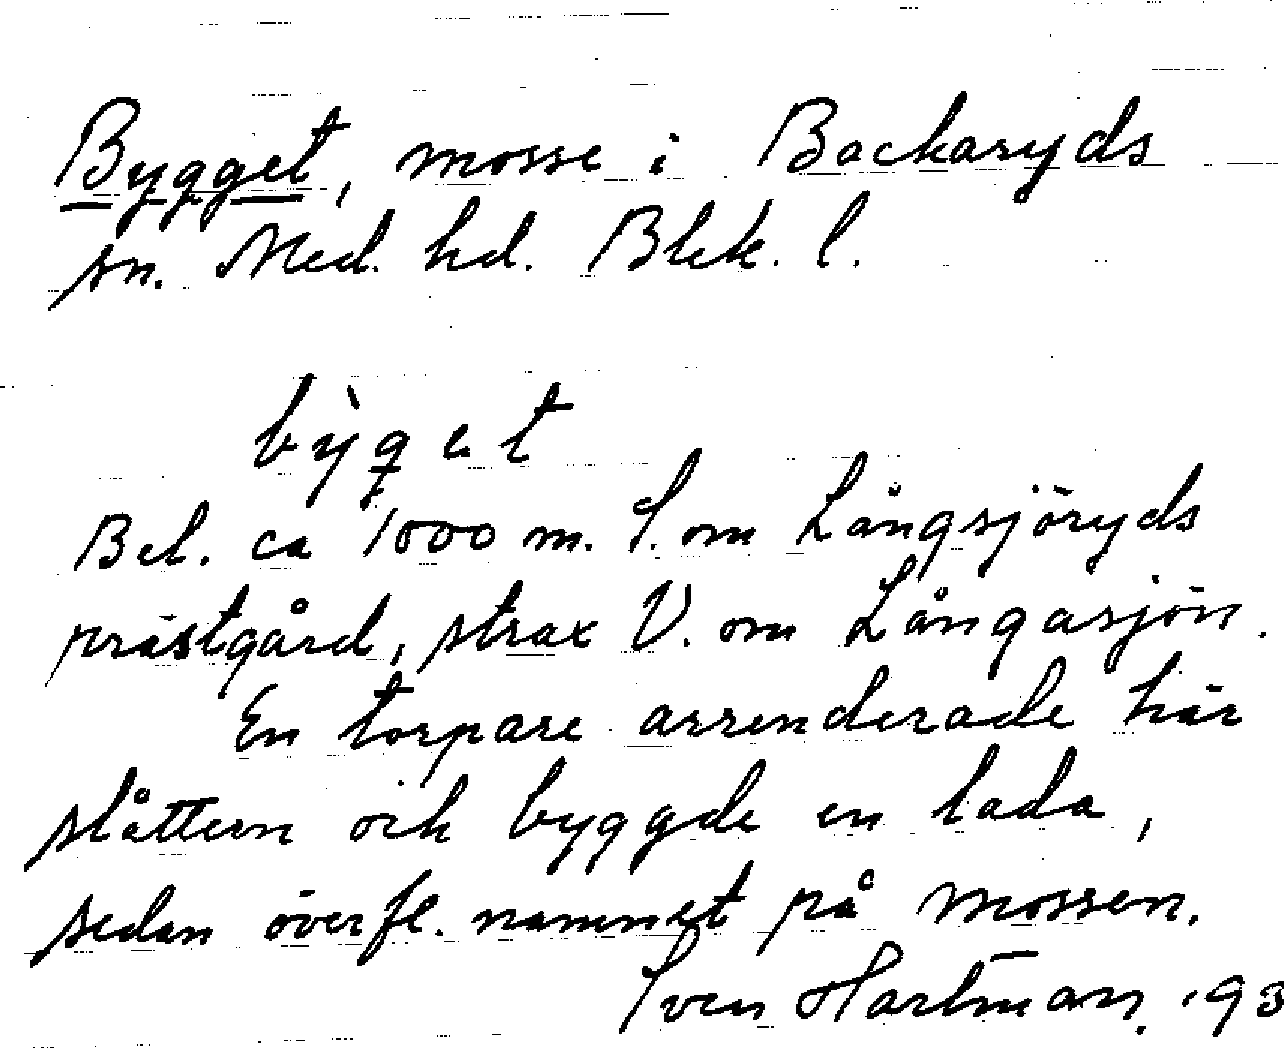 Bygget, mosse i Backaryds
sn. Med. hd. Blek. l.
bỳget
Bel. ca 1000 m. S. om Långsjöryds
prästgård, strax V. om Långasjön.
En torpare arrenderade här
slåttern och byggde en lada,
sedan överfl. namnet på mossen.
Sven Hartman. -93